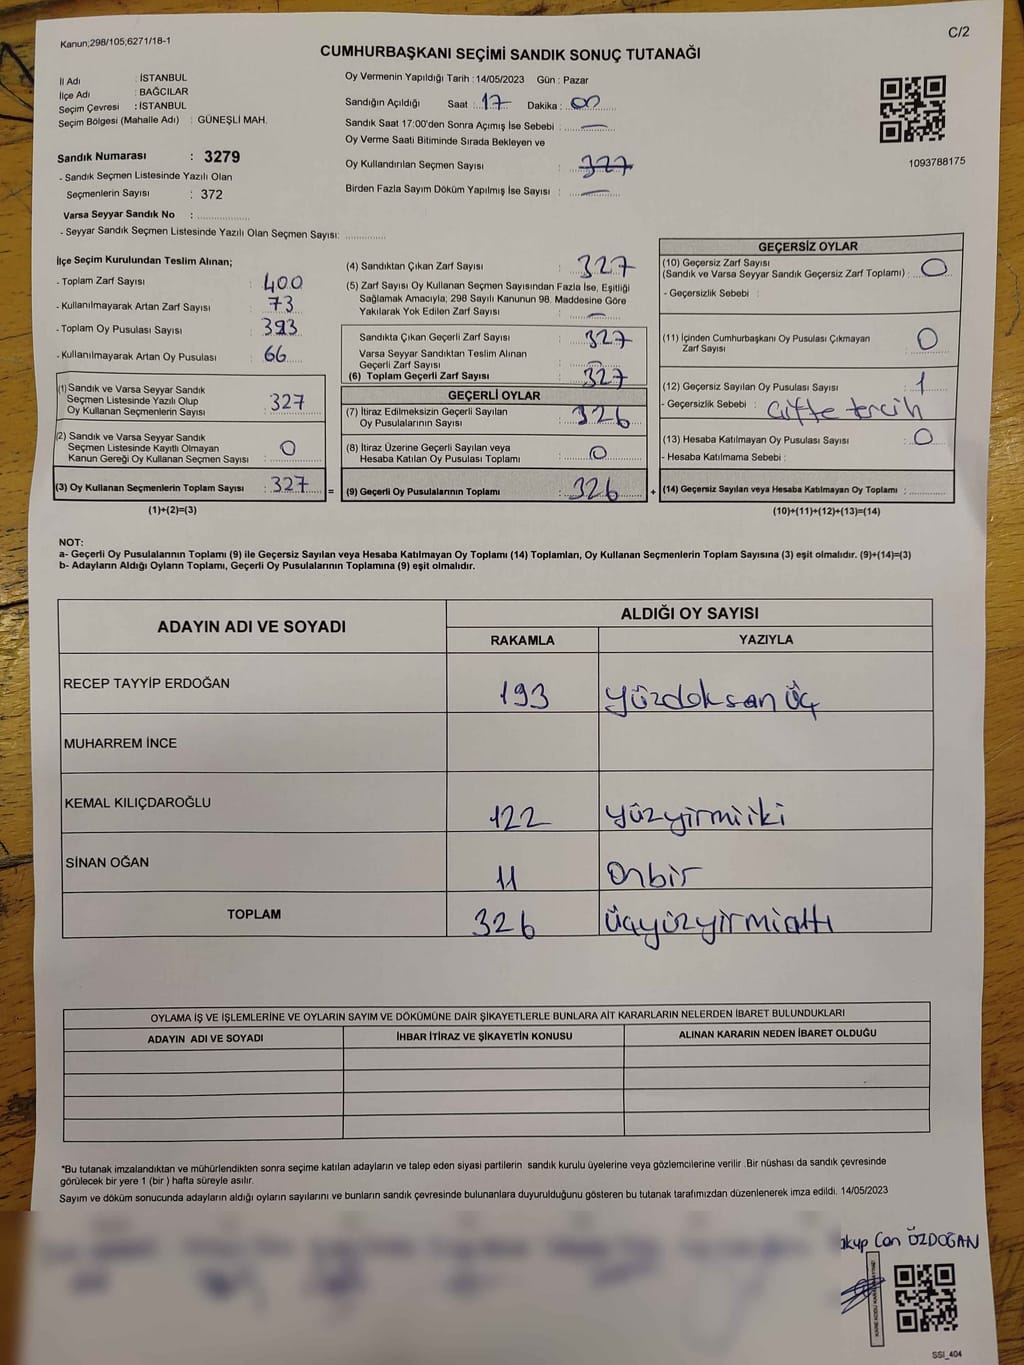 Kanun;298/105;6271/18-1
C/2
CUMHURBAŞKANI SEÇİMİ SANDIK SONUÇ TUTANAĞI
İl Adı : İSTANBUL
İlçe Adı : BAĞCILAR
Seçim Çevresi : İSTANBUL
Seçim Bölgesi (Mahalle Adı) : GÜNEŞLİ MAH.
Sandık Numarası : 3279
- Sandık Seçmen Listesinde Yazılı Olan
Seçmenlerin Sayısı : 372
Varsa Seyyar Sandık No :
- Seyyar Sandık Seçmen Listesinde Yazılı Olan Seçmen Sayısı:
Oy Vermenin Yapıldığı Tarih : 14/05/2023 Gün : Pazar
Sandığın Açıldığı Saat : 17 Dakika : 00
Sandık Saat 17:00'den Sonra Açımış İse Sebebi : —
Oy Verme Saati Bitiminde Sırada Bekleyen ve
Oy Kullandırılan Seçmen Sayısı : 327
Birden Fazla Sayım Döküm Yapılmış İse Sayısı : —
1093788175
İlçe Seçim Kurulundan Teslim Alınan;
- Toplam Zarf Sayısı : 400
- Kullanılmayarak Artan Zarf Sayısı : 73
- Toplam Oy Pusulası Sayısı : 393
- Kullanılmayarak Artan Oy Pusulası : 66
(1) Sandık ve Varsa Seyyar Sandık
Seçmen Listesinde Yazılı Olup
Oy Kullanan Seçmenlerin Sayısı : 327
(2) Sandık ve Varsa Seyyar Sandık
Seçmen Listesinde Kayıtlı Olmayan
Kanun Gereği Oy Kullanan Seçmen Sayısı : 0
(3) Oy Kullanan Seçmenlerin Toplam Sayısı : 327 =
(1)+(2)=(3)
(4) Sandıktan Çıkan Zarf Sayısı : 327
(5) Zarf Sayısı Oy Kullanan Seçmen Sayısından Fazla İse, Eşitliği
Sağlamak Amacıyla; 298 Sayılı Kanunun 98. Maddesine Göre
Yakılarak Yok Edilen Zarf Sayısı : —
Sandıkta Çıkan Geçerli Zarf Sayısı : 327
Varsa Seyyar Sandıktan Teslim Alınan
Geçerli Zarf Sayısı :
(6) Toplam Geçerli Zarf Sayısı : 327
GEÇERLİ OYLAR
(7) İtiraz Edilmeksizin Geçerli Sayılan
Oy Pusulalarının Sayısı : 326
(8) İtiraz Üzerine Geçerli Sayılan veya
Hesaba Katılan Oy Pusulası Toplamı : 0
(9) Geçerli Oy Pusulalarının Toplamı : 326 +
GEÇERSİZ OYLAR
(10) Geçersiz Zarf Sayısı
(Sandık ve Varsa Seyyar Sandık Geçersiz Zarf Toplamı) : 0
- Geçersizlik Sebebi :
(11) İçinden Cumhurbaşkanı Oy Pusulası Çıkmayan
Zarf Sayısı : 0
(12) Geçersiz Sayılan Oy Pusulası Sayısı : 1
- Geçersizlik Sebebi : Çifte tercih
(13) Hesaba Katılmayan Oy Pusulası Sayısı : 0
- Hesaba Katılmama Sebebi :
(14) Geçersiz Sayılan veya Hesaba Katılmayan Oy Toplamı :
(10)+(11)+(12)+(13)=(14)
NOT:
a- Geçerli Oy Pusulalarının Toplamı (9) ile Geçersiz Sayılan veya Hesaba Katılmayan Oy Toplamı (14) Toplamları, Oy Kullanan Seçmenlerin Toplam Sayısına (3) eşit olmalıdır. (9)+(14)=(3)
b- Adayların Aldığı Oyların Toplamı, Geçerli Oy Pusulalarının Toplamına (9) eşit olmalıdır.
ADAYIN ADI VE SOYADI
ALDIĞI OY SAYISI
RAKAMLA YAZIYLA
RECEP TAYYİP ERDOĞAN 193 yüzdoksan üç
MUHARREM İNCE
KEMAL KILIÇDAROĞLU 122 yüzyirmiiki
SİNAN OĞAN 11 Onbir
TOPLAM 326 üçyüzyirmialtı
OYLAMA İŞ VE İŞLEMLERİNE VE OYLARIN SAYIM VE DÖKÜMÜNE DAİR ŞİKAYETLERLE BUNLARA AİT KARARLARIN NELERDEN İBARET BULUNDUKLARI
ADAYIN ADI VE SOYADI İHBAR İTİRAZ VE ŞİKAYETİN KONUSU ALINAN KARARIN NEDEN İBARET OLDUĞU
*Bu tutanak imzalandıktan ve mühürlendikten sonra seçime katılan adayların ve talep eden siyasi partilerin sandık kurulu üyelerine veya gözlemcilerine verilir .Bir nüshası da sandık çevresinde
görülecek bir yere 1 (bir ) hafta süreyle asılır.
Sayım ve döküm sonucunda adayların aldığı oyların sayılarını ve bunların sandık çevresinde bulunanlara duyurulduğunu gösteren bu tutanak tarafımızdan düzenlenerek imza edildi. 14/05/2023
akup Can ÖZDOĞAN
SSI_404